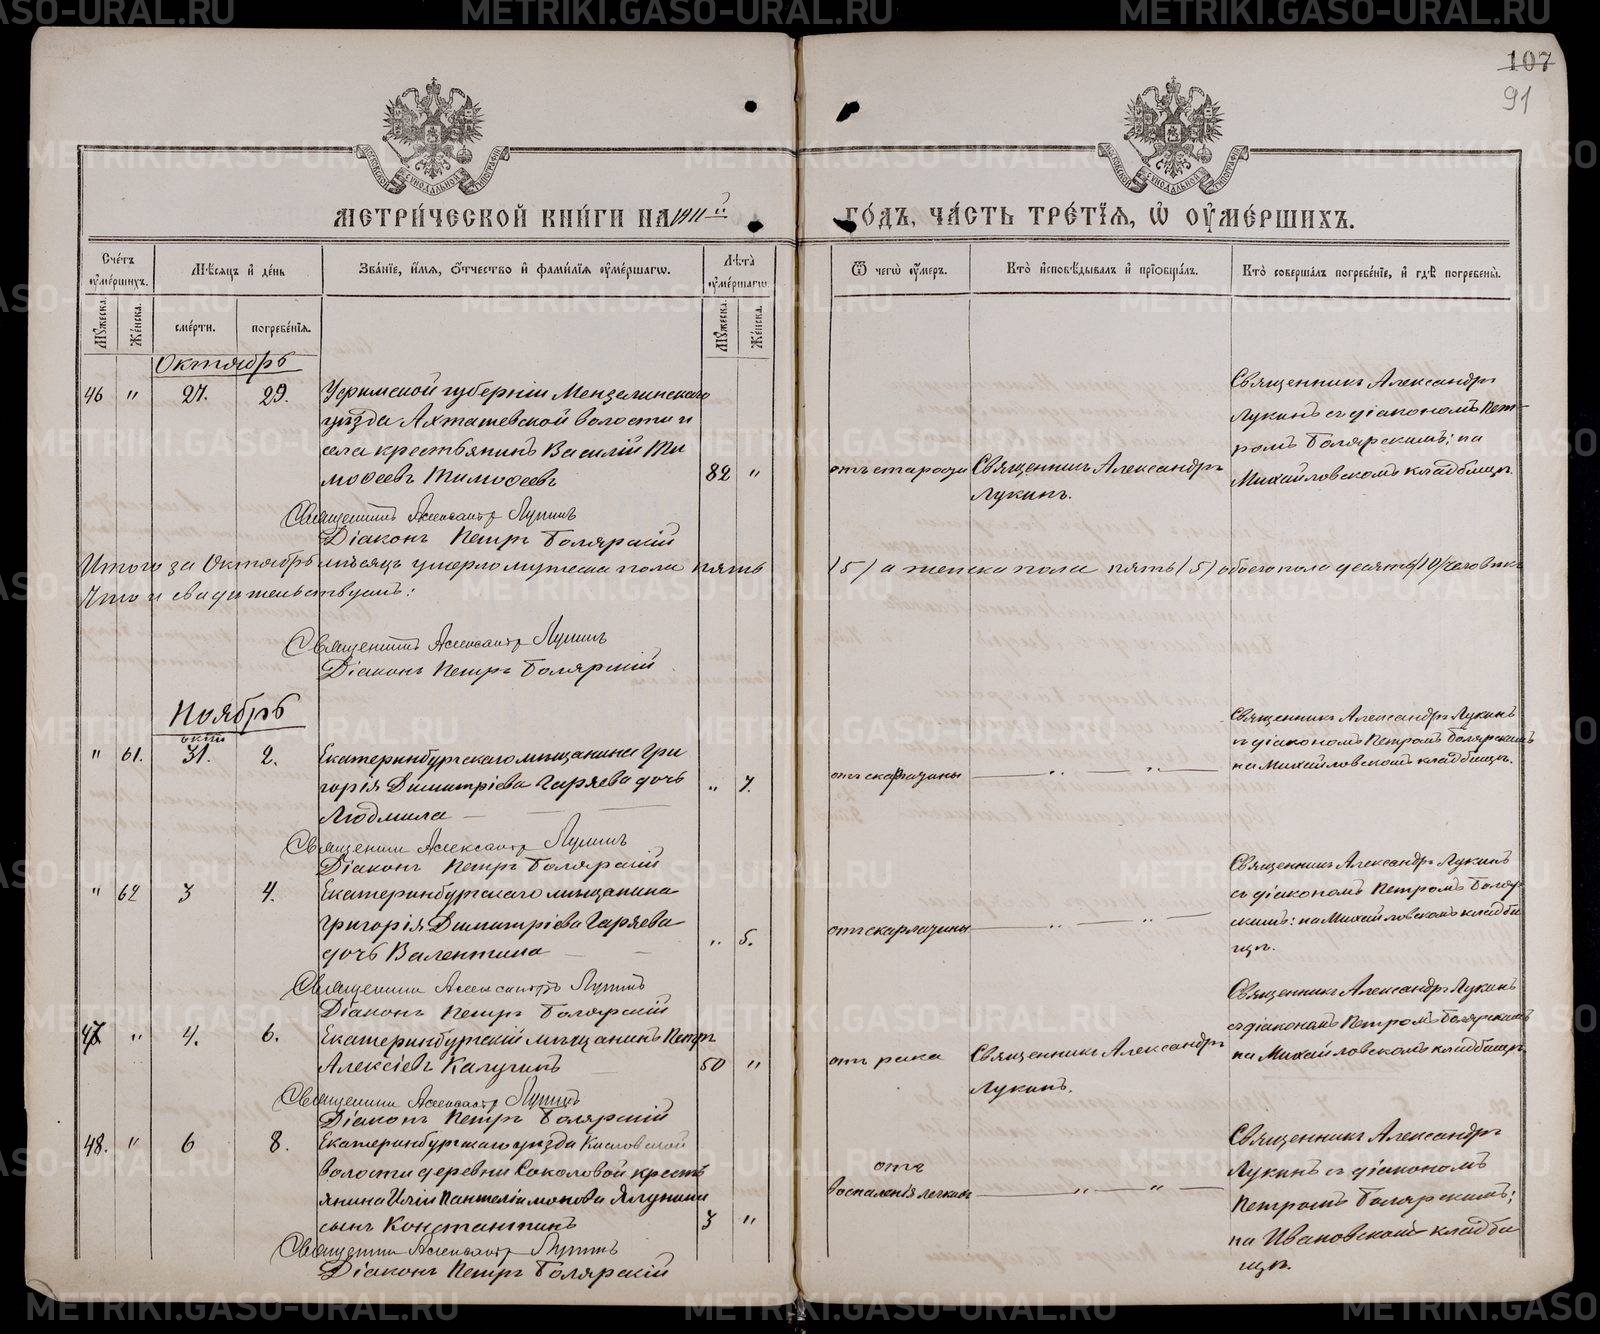 107
91
МЕТРИ́ЧЕСКОЙ КНИ́ГИ НА 1911й ГО́ДЪ, ЧА́СТЬ ТРЕ́ТЇѦ, Ѡ҆ ОУ҆МЕ́РШИХЪ.
Сче́тъ оу҆ме́ршихъ.
Мѣ́сѧцъ и҆ де́нь
Зва́нїе, и҆́мѧ, ѻ҆́тчество и҆ фами́лїѧ оу҆ме́ршагѡ.
Лѣ́та оу҆ме́ршагѡ.
Ѿ чегѡ̀ оу҆́меръ.
Кто̀ и҆сповѣ́дывалъ и҆ прїѻбща́лъ.
Кто̀ соверша́лъ погребе́нїе, и҆ гдѣ̀ погребены̀.
Мꙋ́жеска.
Же́нска.
сме́рти.
погребе́нїѧ.
Мꙋ́жеска.
Же́нска.
Октябрь
46 " 27. 29.
Уфимской губерніи Мензелинскаго
уѣзда Ахташевской волости и
села крестьянинъ Василій Ти
моѳеевъ Тимоѳеевъ
82 "
отъ старости
Священникъ Александръ
Лукинъ.
Священникъ Александръ
Лукинъ съ діакономъ Пет-
ромъ Болярскимъ; на
Михайловскомъ кладбищѣ.
Священникъ Александръ Лукинъ
Діаконъ Петръ Болярскій
Итого за Октябрь мѣсяцъ умерло мужеска пола пять (5) а женска пола пять (5) обоего пола десять (10) человѣкъ
Что и свидѣтельствуемъ:
Священникъ Александръ Лукинъ
Діаконъ Петръ Болярскій
Ноябрь
" 61. окт. 31. 2.
Екатеринбургскаго мѣщанина Гри
горія Димитріева Гаряева дочь
Людмила
" 7.
отъ скарлатины
" "
Священникъ Александръ Лукинъ
съ діакономъ Петромъ Болярскимъ
на Михайловскомъ кладбищѣ.
Священникъ Александръ Лукинъ
Діаконъ Петръ Болярскій
" 62 3 4.
Екатеринбургскаго мѣщанина
Григорія Димитріева Гаряева
дочь Валентина
" 5.
отъ скарлатины
" "
Священникъ Александръ Лукинъ
съ діакономъ Петромъ Боляр
скимъ: на Михайловскомъ кладби
щѣ.
Священникъ Александръ Лукинъ
Діаконъ Петръ Болярскій
47 " 4. 6.
Екатеринбургскій мѣщанинъ Петръ
Алексіевъ Калугинъ
50 "
отъ рака
Священникъ Александръ
Лукинъ.
Священникъ Александръ Лукинъ
съ діакономъ Петромъ Болярскимъ
на Михайловскомъ кладбищѣ.
Священникъ Александръ Лукинъ
Діаконъ Петръ Болярскій
48. " 6 8.
Екатеринбургскаго уѣзда Кисловской
волости деревни Соколовой кресть
янина Иліи Пантелеимонова Ялунина
сынъ Константинъ
3 "
отъ
воспаленія легкихъ
" "
Священникъ Александръ
Лукинъ съ діакономъ
Петромъ Болярскимъ;
на Ивановскомъ кладби
щѣ.
Священникъ Александръ Лукинъ
Діаконъ Петръ Болярскій
METRIKI.GASO-URAL.RU